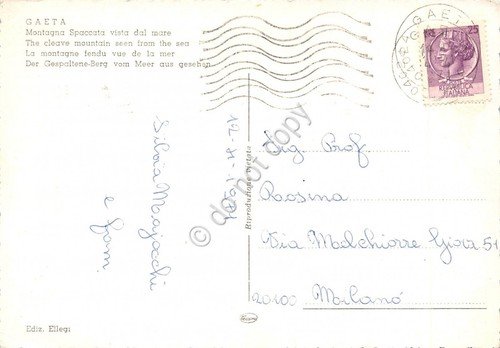 GAETA
Montagna Spaccata vista dal mare
The cleave mountain seen from the sea
La montagne fendu vue de la mer
Der Gespaltene-Berg vom Meer aus gesehen
GAETA
25
REPUBBLICA
ITALIANA
do not copy
Silvia
e
Riproduzione vietata
Sig. Prof.
Rosina
Via Melchiorre Gioia 51
20100 Milano
Ediz. Ellegi